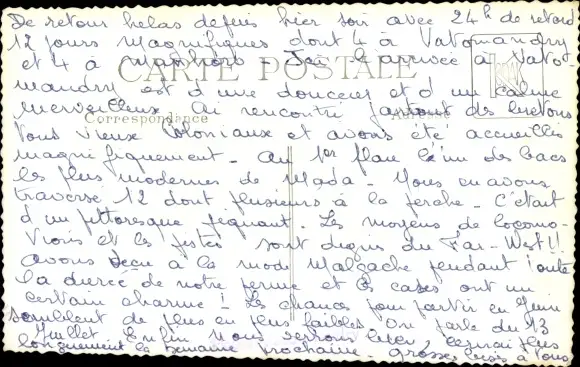 De retour helas depuis hier soir avec 24h de retard
12 jours magnifiques dont 4 à Vatomandry
et 4 à - l'arrivée à Vato-
CARTE POSTALE
mandry est d'une douceur et d'un calme
merveilleux. Ai rencontré partout des bretons
Correspondance
tous vieux Coloniaux et avons été accueillis
magnifiquement - Au 1er plan l'un des bacs
les plus modernes de Mada - Nous en avons
traversé 12 dont plusieurs à la perche - C'était
d'un pittoresque piquant. Les moyens de locomo-
tions et les pistes sont dignes du Far-West!!
avons vécu à la mode Malgache pendant toute
la durée de notre et cases ont un
certain charme! Les chances pour partir en Juin
semblent de plus en plus faibles. On parle du 13
Juillet Enfin nous verrons bien, écrirai plus
longuement la semaine prochaine. Grosses bises à vous